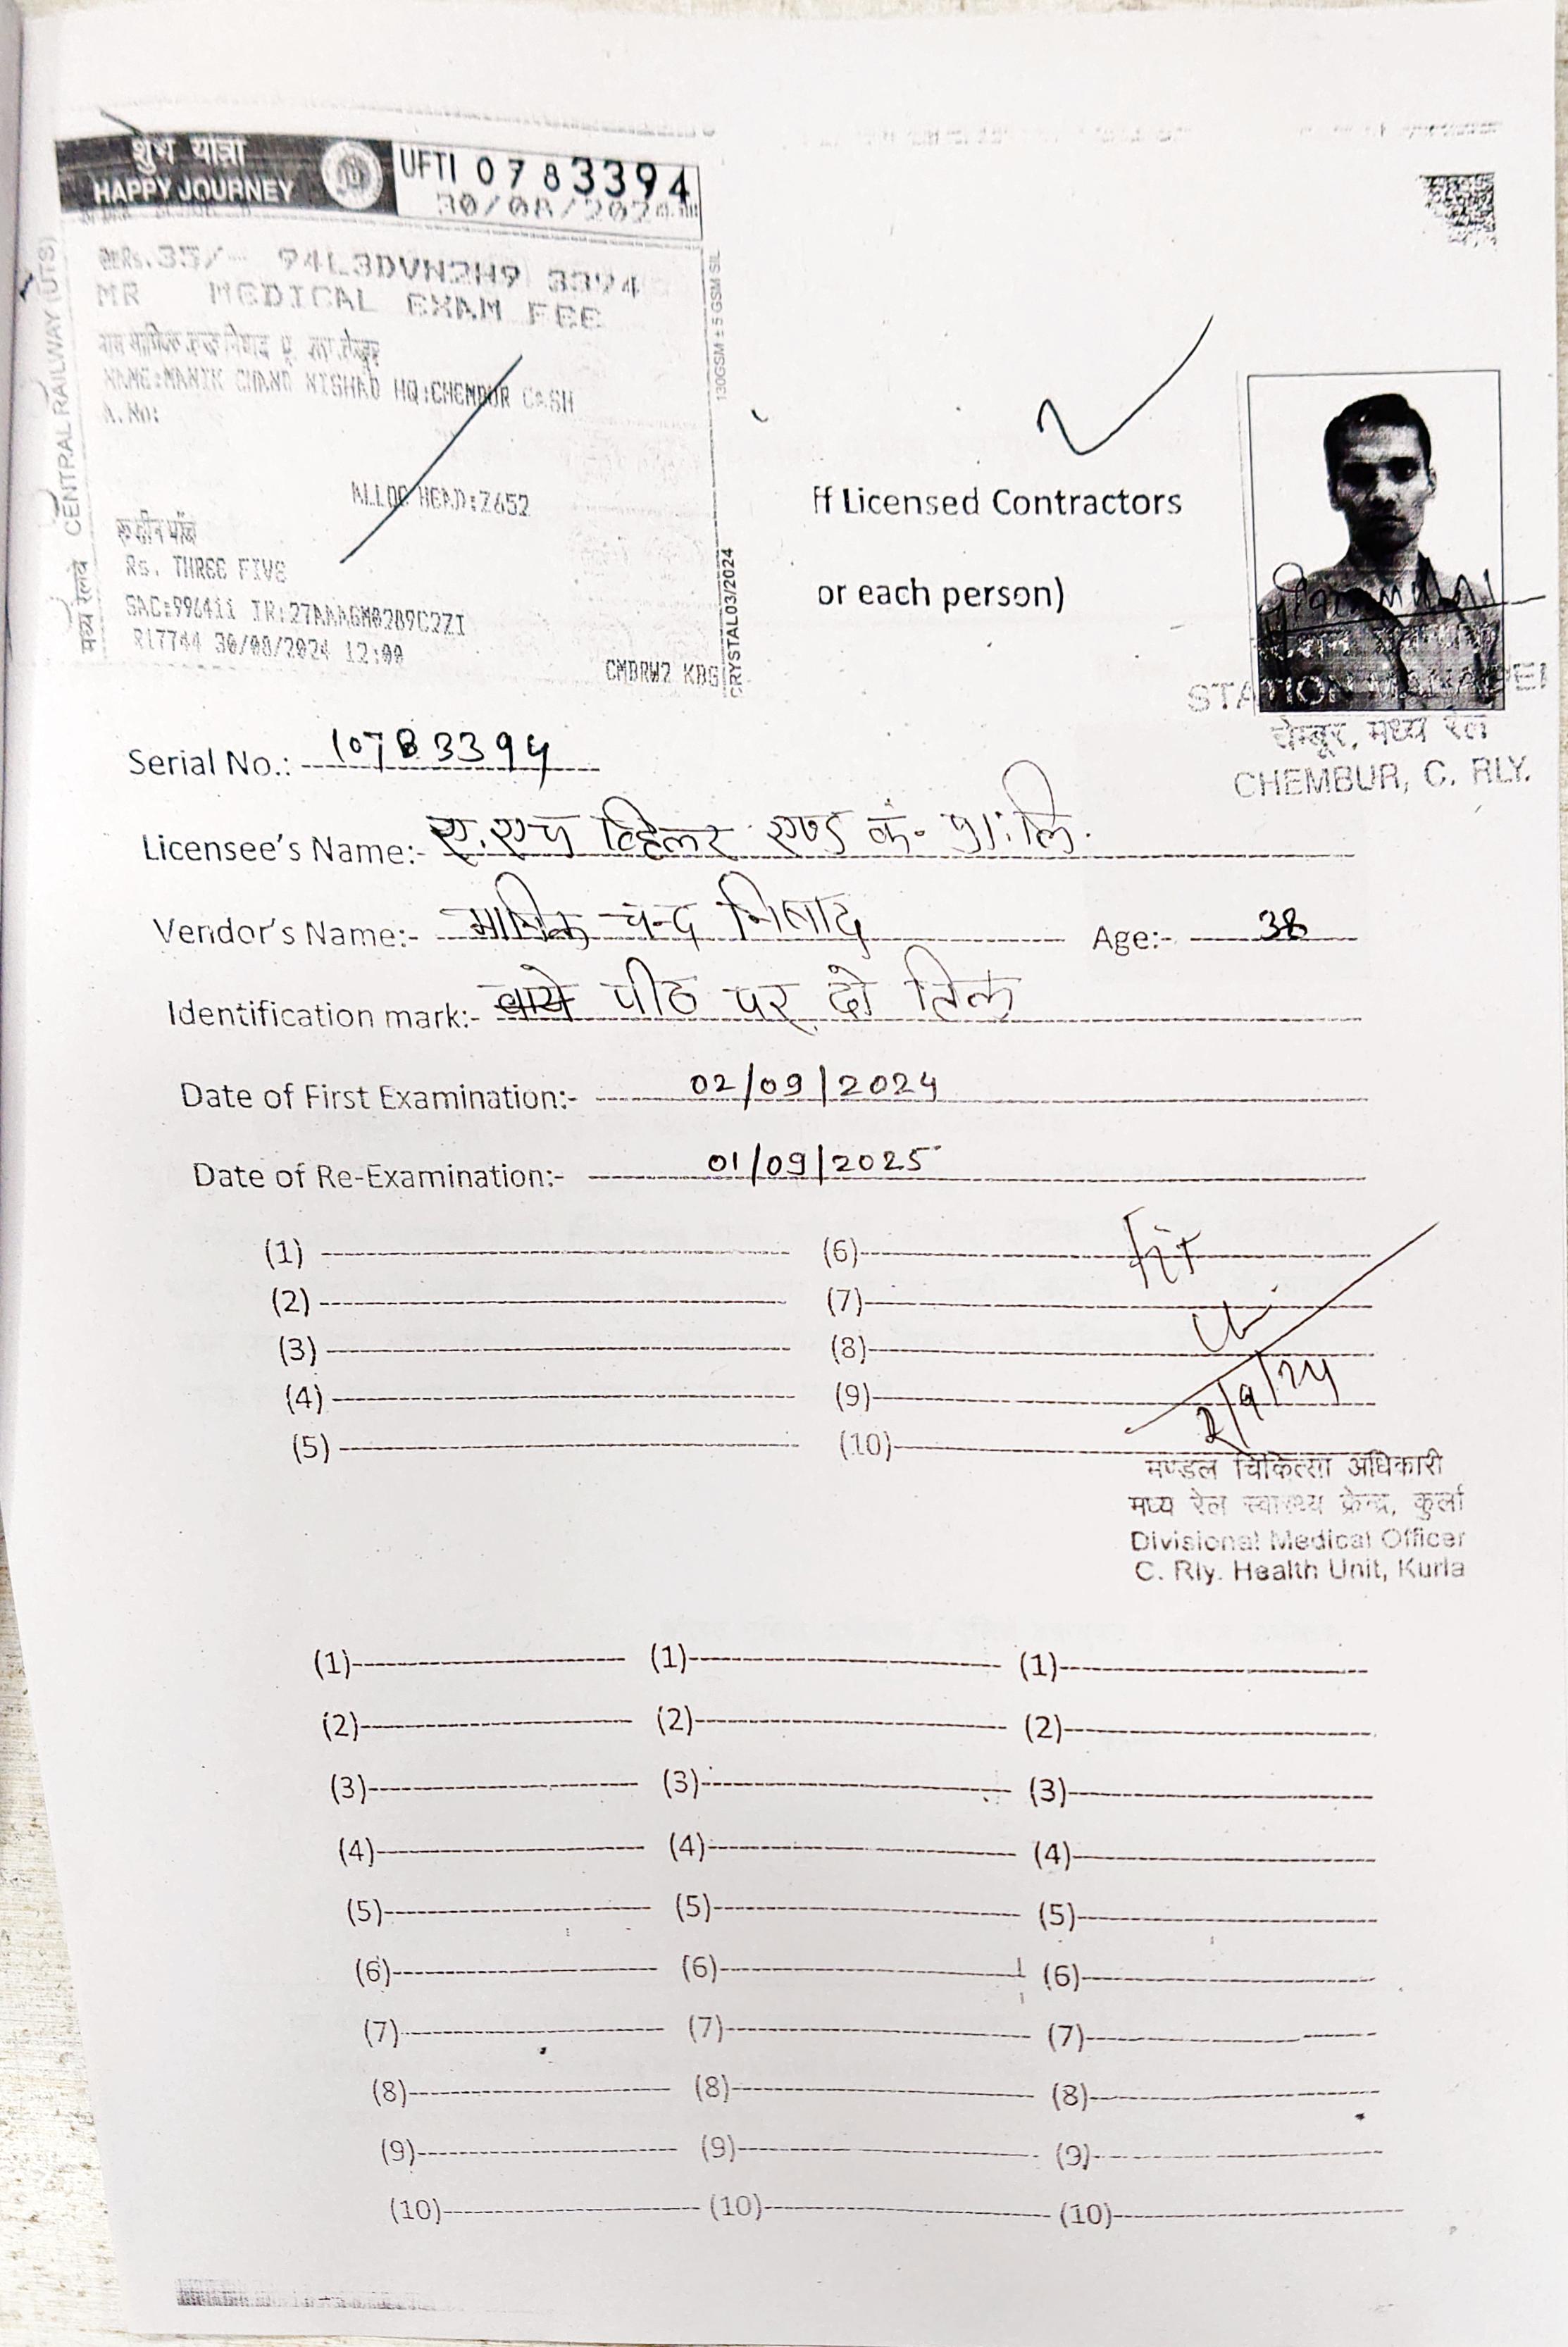 शुभ यात्रा
HAPPY JOURNEY
UFTI 0783394
30/08/2024
Rs.35/- 94L3DVN2H9 3394
MR MEDICAL EXAM FEE
NAME:MANIK CHAND NISHAD HQ:CHEMBUR CASH
A.No:
ALLOC HEAD:Z652
रु तीन पाँच
Rs. THREE FIVE
SAC:996411 IR:27AAAGM0289C2ZI
R17744 30/08/2024 12:00
CMBRW2 KBG
मध्य रेलवे CENTRAL RAILWAY (UTS)
130GSM ± 5 GSM SIL
CRYSTAL03/2024
ff Licensed Contractors
or each person)
STATION MANAGER
चेम्बूर, मध्य रेल
CHEMBUR, C. RLY.
Serial No.: 10783394
Licensee's Name:- ए.एच व्हिलर एण्ड कं. प्रा. लि.
Vendor's Name:- माणिक चन्द निषाद Age:- 38
Identification mark:- बायें पीठ पर दो तिल
Date of First Examination:- 02/09/2024
Date of Re-Examination:- 01/09/2025
(1) (6) Fit
(2) (7)
(3) (8)
(4) (9) 2/9/24
(5) (10)
मण्डल चिकित्सा अधिकारी
मध्य रेल स्वास्थ्य केन्द्र, कुर्ला
Divisional Medical Officer
C. Rly. Health Unit, Kurla
(1) (1) (1)
(2) (2) (2)
(3) (3) (3)
(4) (4) (4)
(5) (5) (5)
(6) (6) (6)
(7) (7) (7)
(8) (8) (8)
(9) (9) (9)
(10) (10) (10)